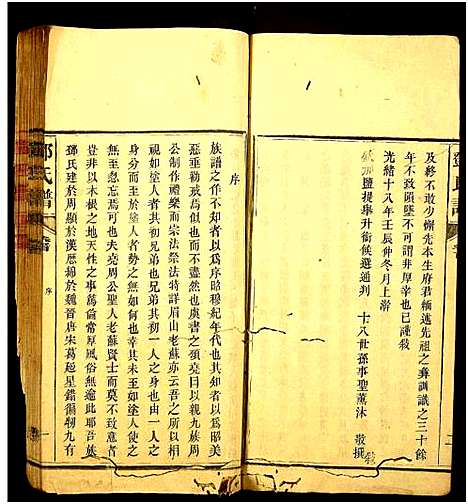 及終不敢少懈先本生府君輒述先祖之彝訓識之三十餘
年不致隕墜不可謂非厚幸也已謹敘
光緒十八年壬辰仲冬月上澣
鹽提舉升銜候選通判 十八世孫事聖薰沐 敬撰
序
族譜之作不知者以為序昭穆紀年代也其知者以為昭美
惡垂勸戒為似也而不盡然也虞書之頌堯曰以親九族周
公制作禮樂而宗法祭法特詳眉山老蘇亦云吾之所以相
視如塗人者其初兄弟也兄弟其初一人之身也一人之身
分而至於塗人者勢也勢吾無如之何也幸其未至於如塗人使之
無至忽忘焉可也夫堯周公聖人也老蘇賢士而不致意者
豈非以木根之地天性之事為倫常厚風俗無逾此耶吾族
鄧氏建於周顯於漢歷綿於魏晉唐宋葛起星錯徧九有
鄧氏譜
序